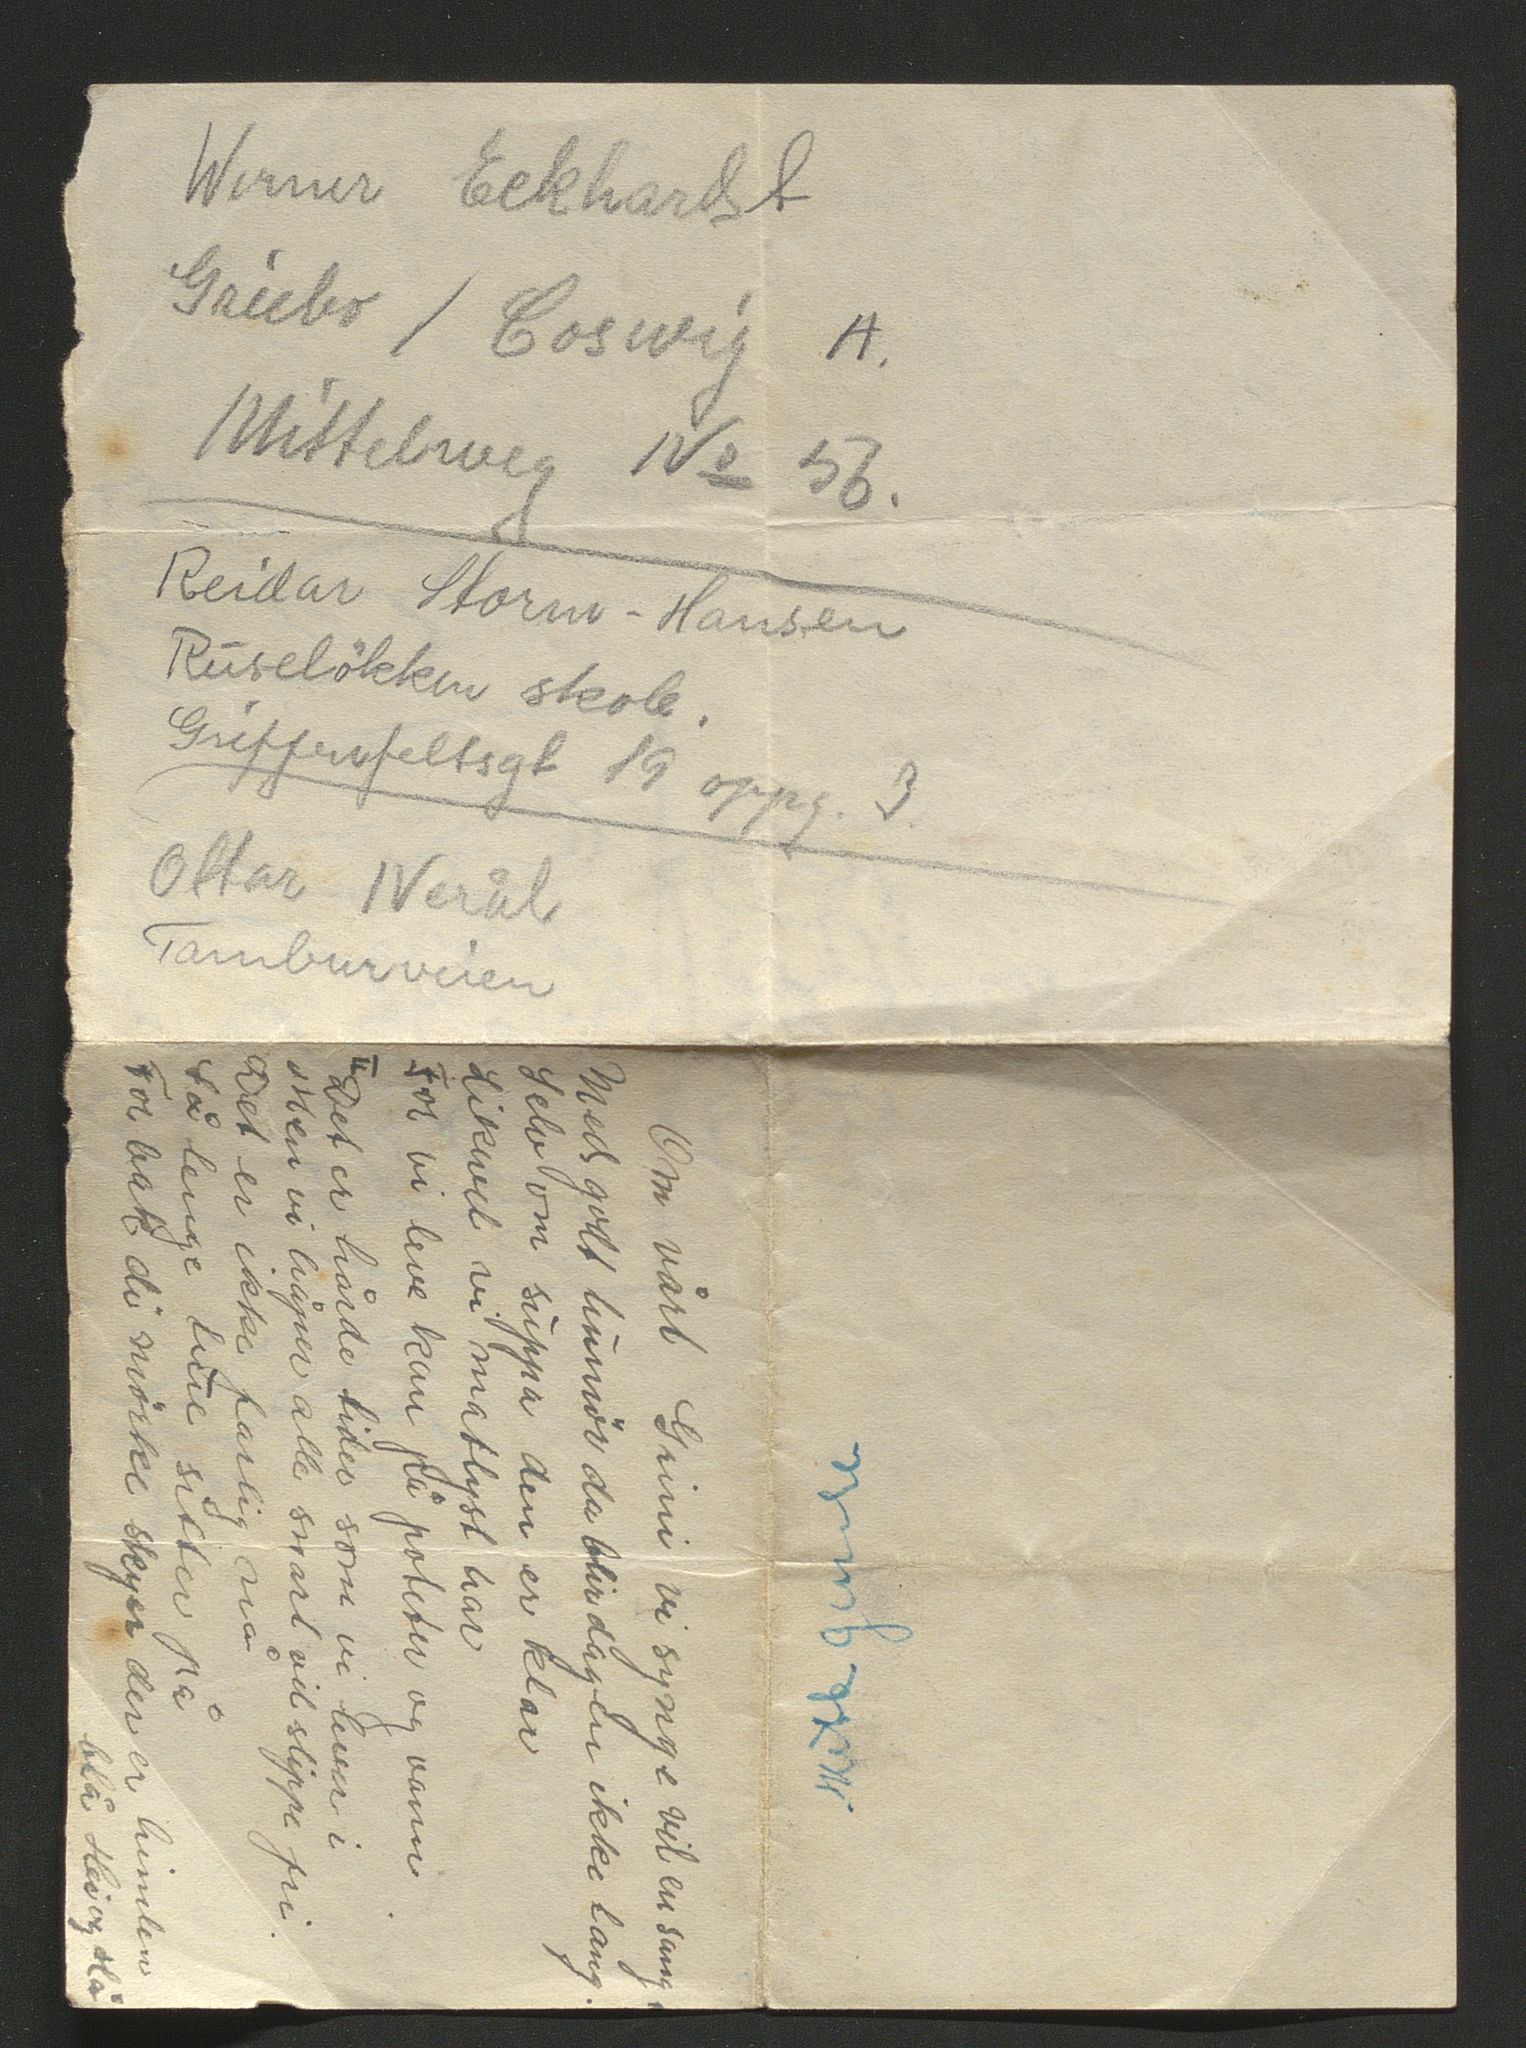 Werner Eckhardt
Griebo / Coswig A.
Mittelweg No 56.
Reidar Storm-Hansen
Ruseløkken skole.
Griffenfeltsgt 19 oppg. 3.
Ottar Nerål
Tamburveien
Om vårt Grini vi synge vil en sang,
Med godt humør da blir dagen ikke lang.
Selv om suppa den er klar
Likevel vi matlyst har
For vi leve kan på poteter og vann
II Det er hårde tider som vi lever i
Men vi håper alle snart vil slippe fri.
Det er ikke farlig nå
Så lenge lūe sitter på
For bak di mørke skyer der er himlen
blå Hei og Hå